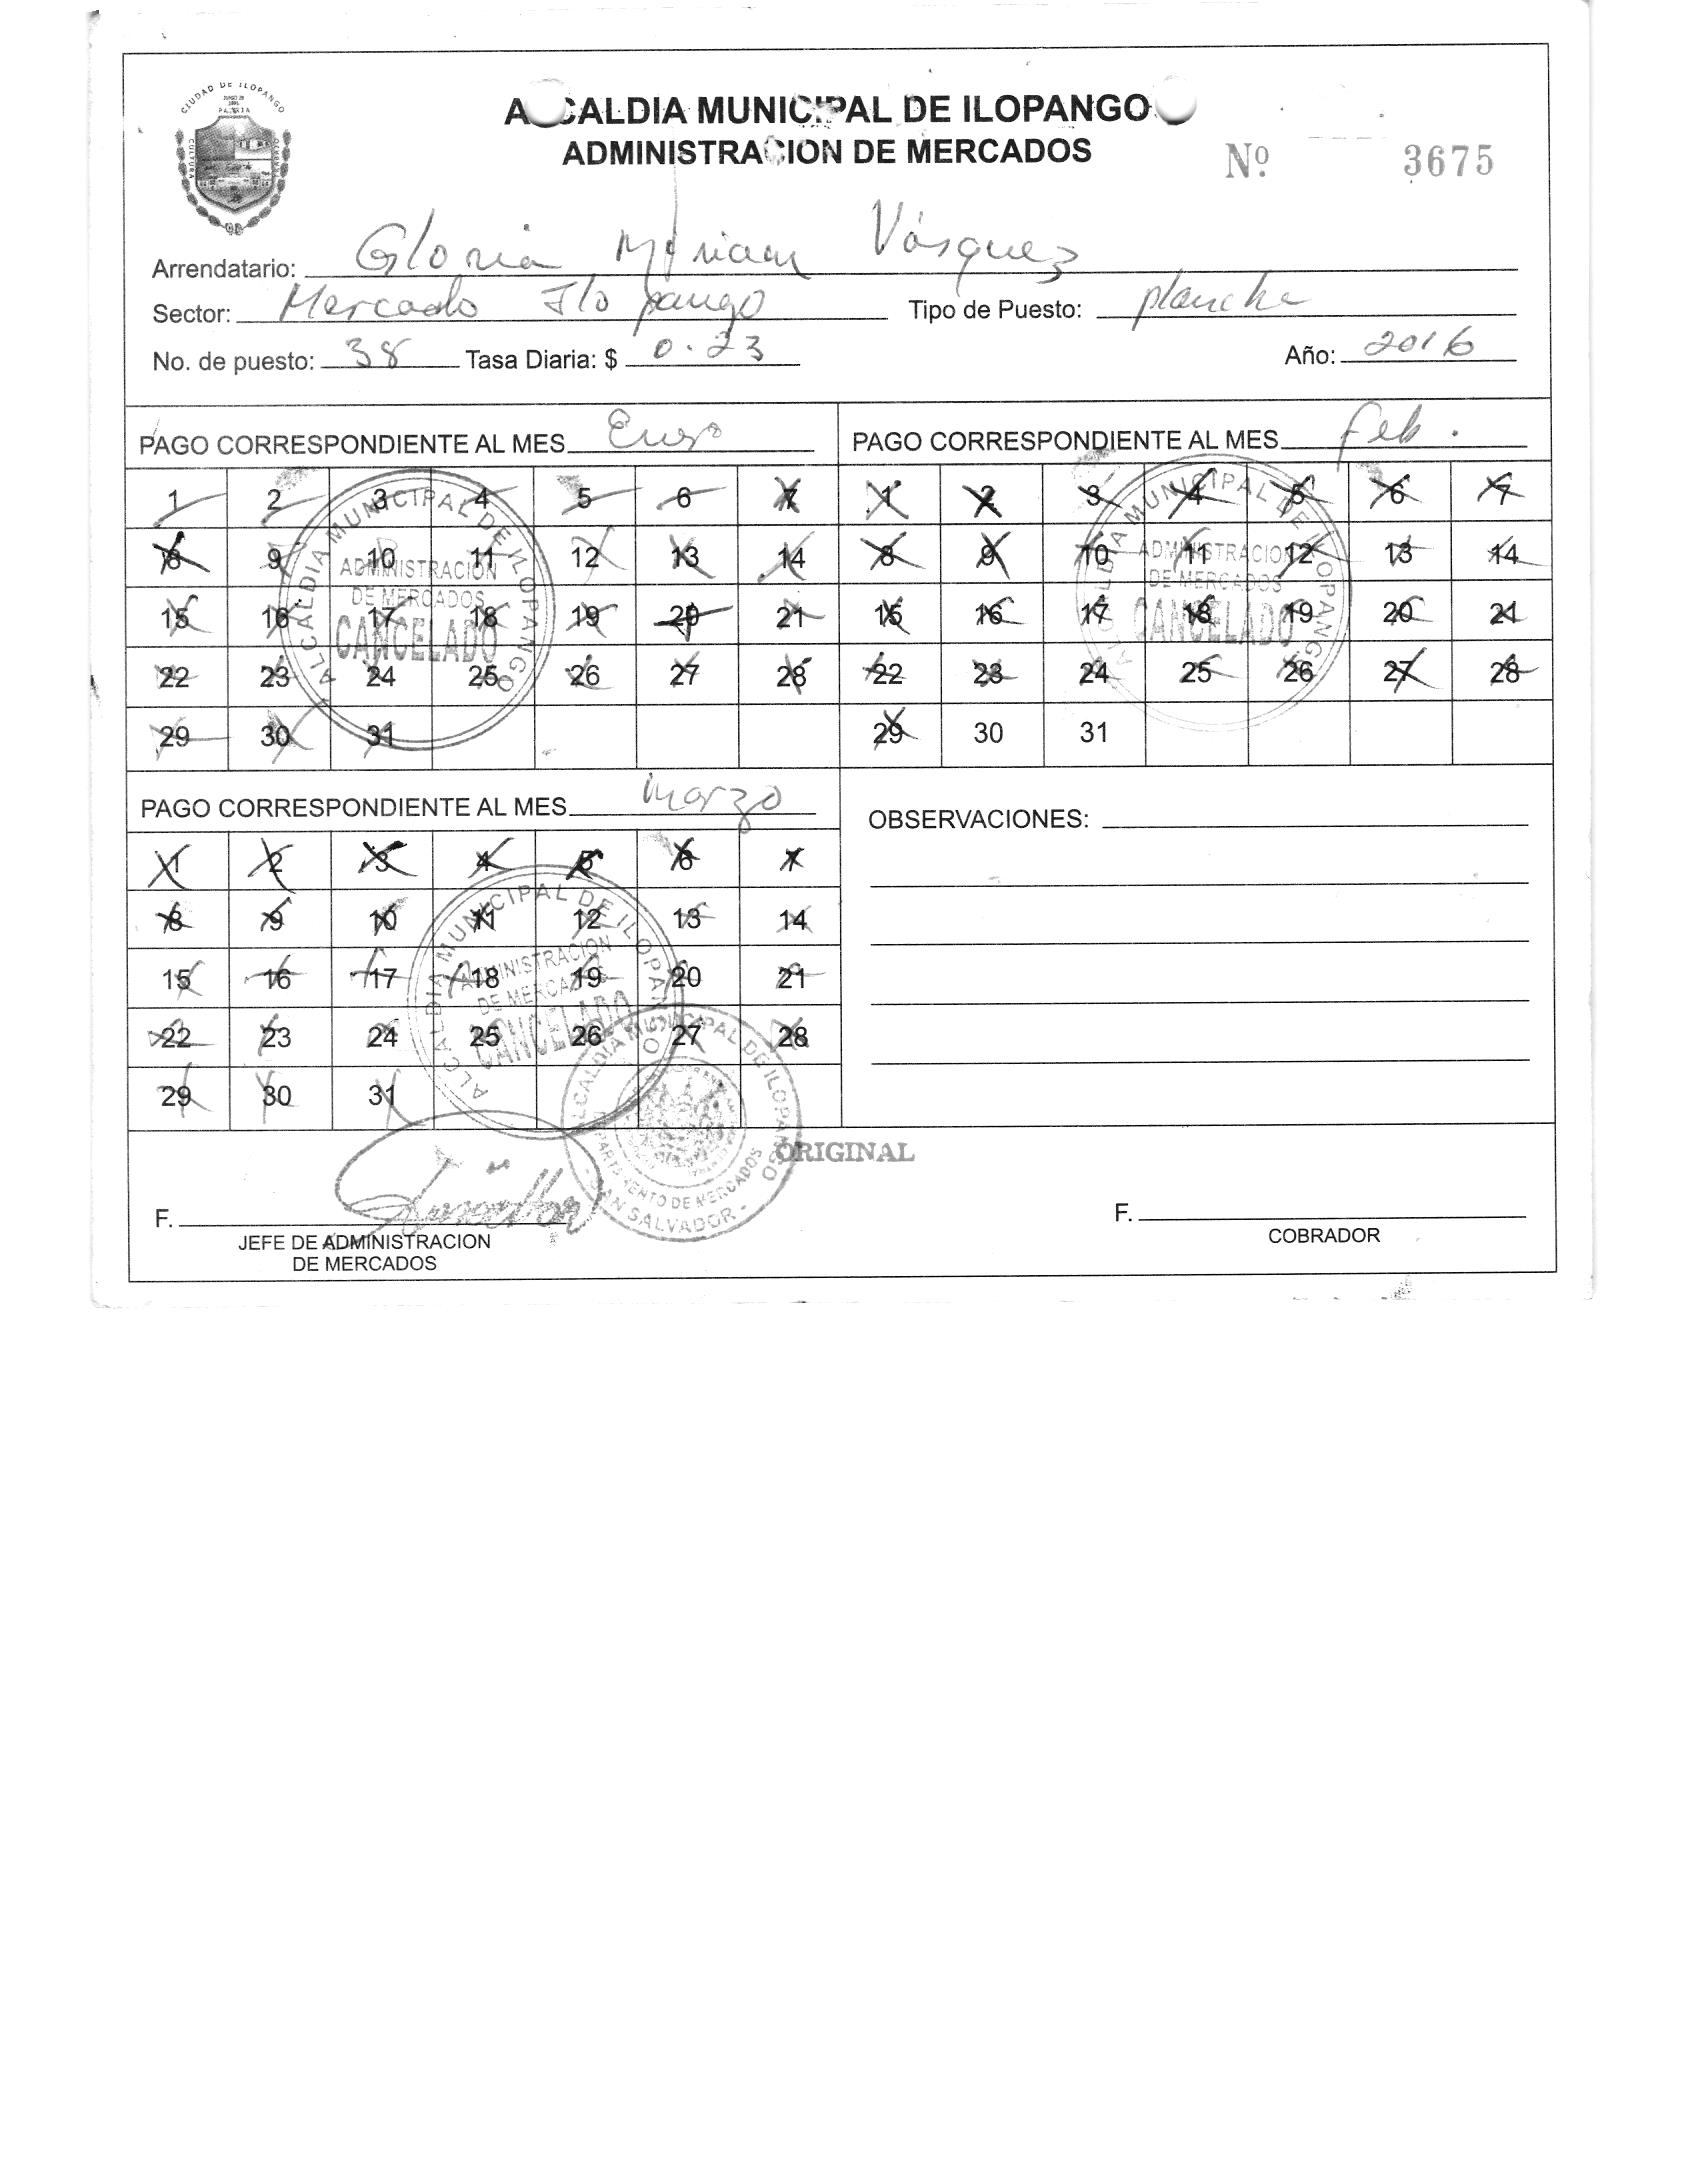 CIUDAD DE ILOPANGO
PATRIA
CULTURA
ALCALDIA MUNICIPAL DE ILOPANGO
ADMINISTRACION DE MERCADOS
Nº 3675
Arrendatario: Gloria Miriam Vásquez
Sector: Mercado Ilopango Tipo de Puesto: plancha
No. de puesto: 38 Tasa Diaria: $ 0.23 Año: 2016
PAGO CORRESPONDIENTE AL MES Enero
1 2 3 4 5 6 7
8 9 10 11 12 13 14
15 16 17 18 19 20 21
22 23 24 25 26 27 28
29 30 31
ALCALDIA MUNICIPAL DE ILOPANGO
ADMINISTRACION
DE MERCADOS
CANCELADO
PAGO CORRESPONDIENTE AL MES Feb.
1 2 3 4 5 6 7
8 9 10 11 12 13 14
15 16 17 18 19 20 21
22 23 24 25 26 27 28
29 30 31
ALCALDIA MUNICIPAL DE ILOPANGO
ADMINISTRACION
DE MERCADOS
CANCELADO
PAGO CORRESPONDIENTE AL MES Marzo
1 2 3 4 5 6 7
8 9 10 11 12 13 14
15 16 17 18 19 20 21
22 23 24 25 26 27 28
29 30 31
ALCALDIA MUNICIPAL DE ILOPANGO
ADMINISTRACION
DE MERCADOS
CANCELADO
OBSERVACIONES:
ALCALDIA MUNICIPAL DE ILOPANGO
DEPARTAMENTO DE MERCADOS
- SAN SALVADOR -
ORIGINAL
F.
JEFE DE ADMINISTRACION
DE MERCADOS
F.
COBRADOR